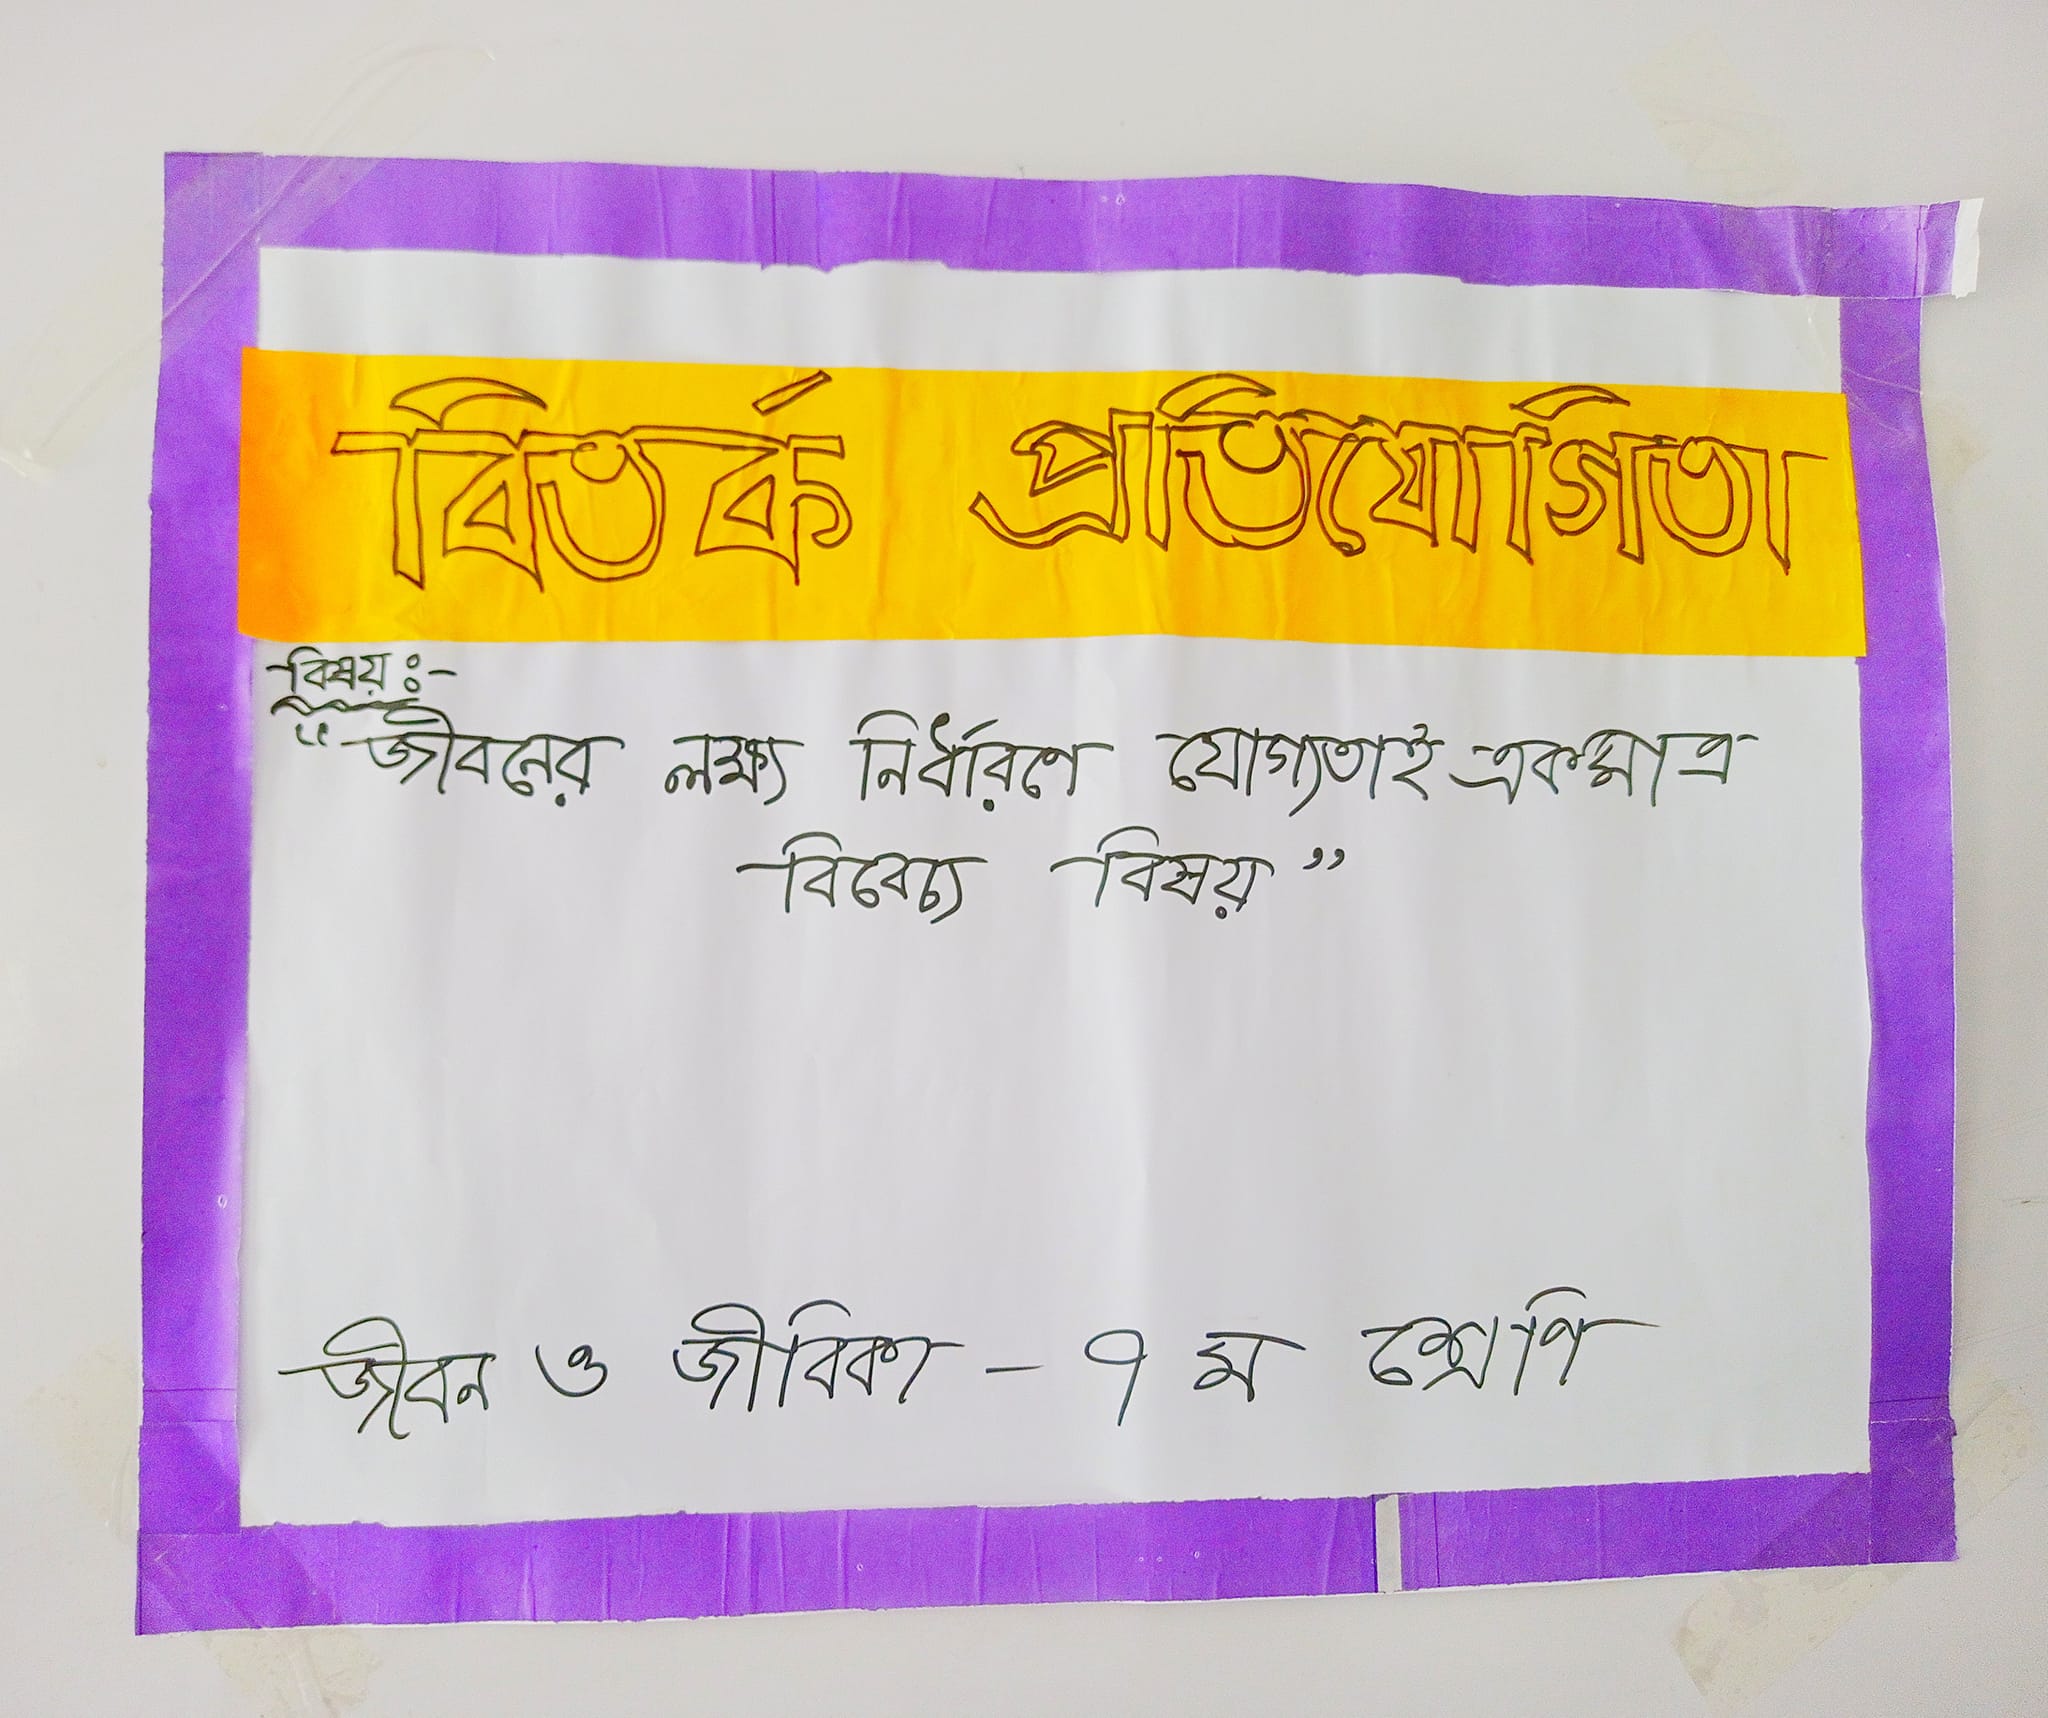 বিতর্ক প্রতিযোগিতা
বিষয় ঃ-
“জীবনের লক্ষ্য নির্ধারণে যোগ্যতাই একমাত্র
বিবেচ্য বিষয়”
জীবন ও জীবিকা - ৭ ম শ্রেণি